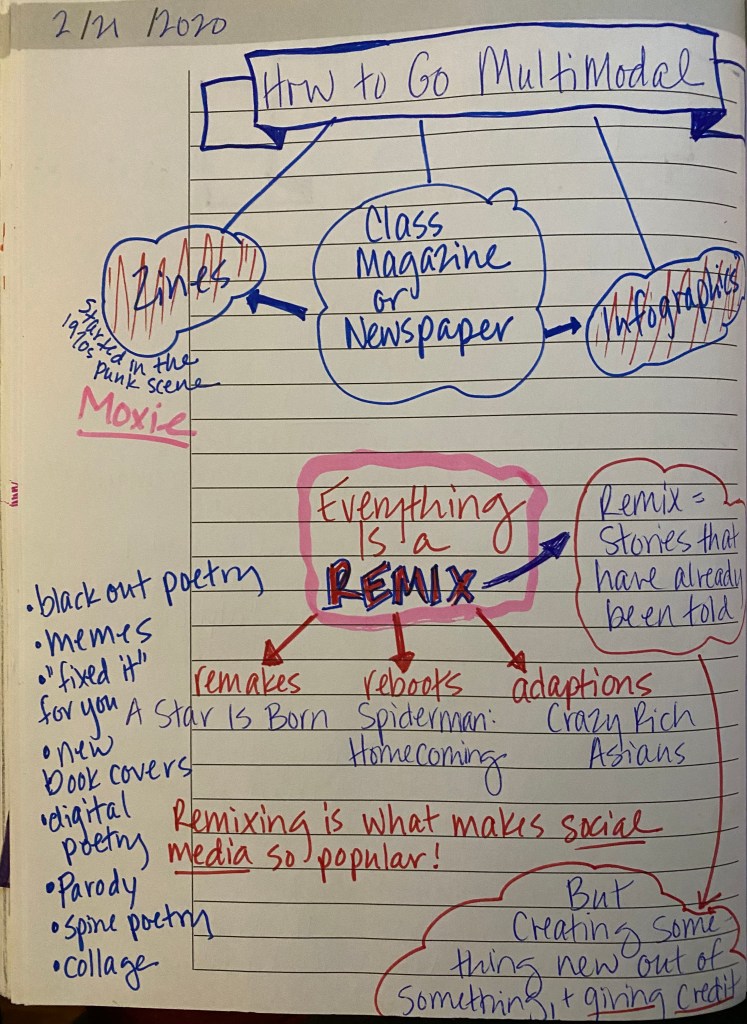 2/21/2020
How to Go MultiModal
Zines
Started in the
1970s Punk scene
Moxie
Class
Magazine
or
Newspaper
Infographics
Everything
Is a
REMIX
Remix =
Stories that
have already
been told
remakes
A Star Is Born
reboots
Spiderman:
Homecoming
adaptions
Crazy Rich
Asians
•black out poetry
•memes
•"fixed it"
for you
•new
book covers
•digital
poetry
•Parody
•spine poetry
•collage
Remixing is what makes social
media so popular!
But
Creating some
thing new out of
something, + giving credit